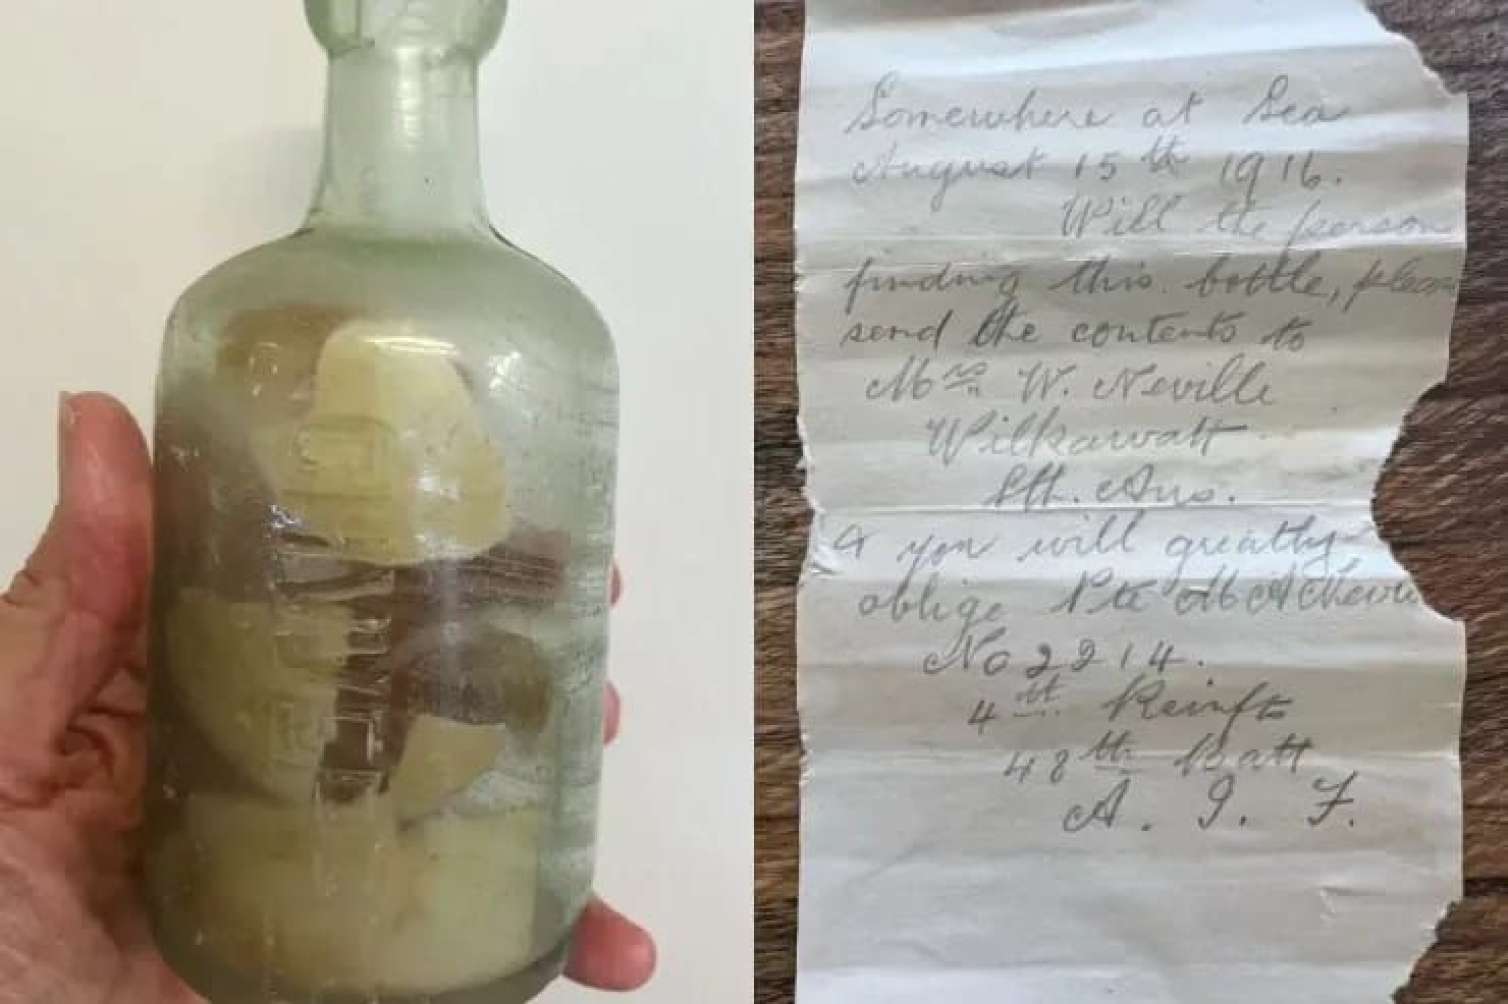 Somewhere at Sea
August 15th 1916.
Will the person
finding this bottle, please
send the contents to
Mrs W. Neville
Wilkawatt
Sth. Aus.
& you will greatly
oblige Pte M A Nevill
No 2214.
4th Reinfts
48th Batt
A. I. F.